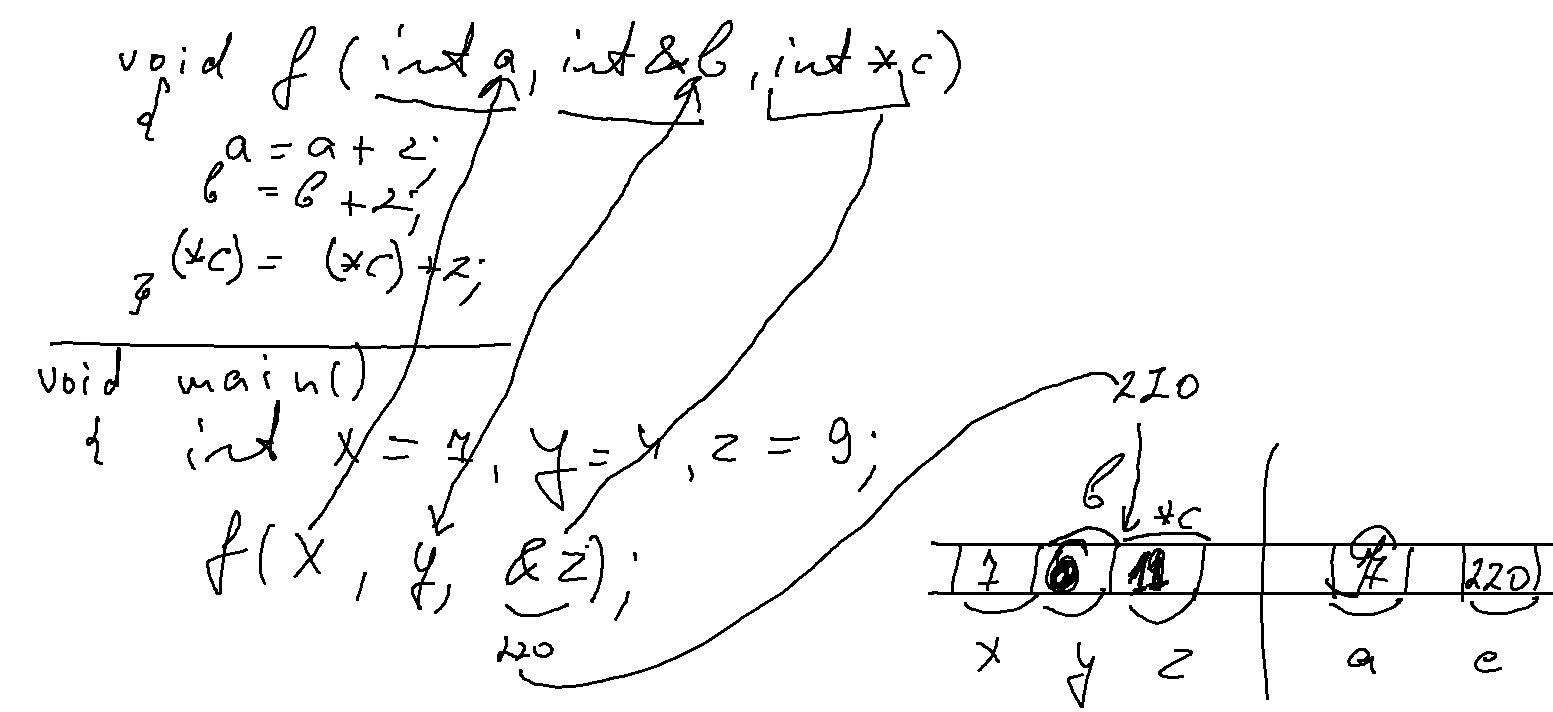 void f(int a, int &b, int *c)
{
a = a + 2;
b = b + 2;
(*c) = (*c) + 2;
}
void main()
{ int x = 7, y = 4, z = 9;
f(x, y, &z);
220
220
b *c
7 11 220
x y z a c